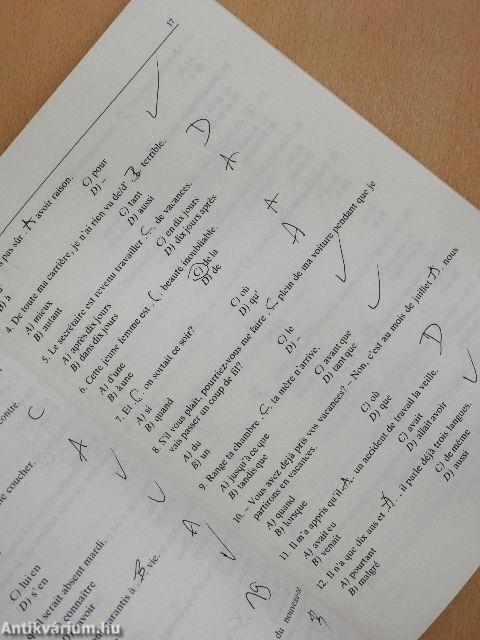 17
pas sûr A avoir raison.
B) à
C) pour
D) –
4. De toute ma carrière, je n'ai rien vu de/d' B terrible.
A) mieux
B) autant
C) tant
D) aussi
D
5. Le secrétaire est revenu travailler C de vacances.
A) après dix jours
B) dans dix jours
C) en dix jours
D) dix jours après
A
6. Cette jeune femme est C beauté inoubliable.
A) d'une
B) à une
C) de la
D) de
A
A
7. Et C on sortait ce soir?
A) si
B) quand
C) où
D) qu'
8. S'il vous plaît, pourriez-vous me faire C plein de ma voiture pendant que je
vais passer un coup de fil?
A) du
B) un
C) le
D) –
9. Range ta chambre C ta mère n'arrive.
A) jusqu'à ce que
B) tandis que
C) avant que
D) tant que
10. – Vous avez déjà pris vos vacances? – Non, c'est au mois de juillet A nous
partirons en vacances.
A) quand
B) lorsque
C) où
D) que
D
11. Il m'a appris qu'il A un accident de travail la veille.
A) avait eu
B) venait
C) avait
D) allait avoir
12. Il n'a que dix ans et A, il parle déjà trois langues.
A) pourtant
B) malgré
C) de même
D) aussi
contre.
C
coucher.
A
C) lui en
D) s'en
serait absent mardi.
connaître
A
garantis à B vie.
19
du nouveau-né
Antikvárium.hu